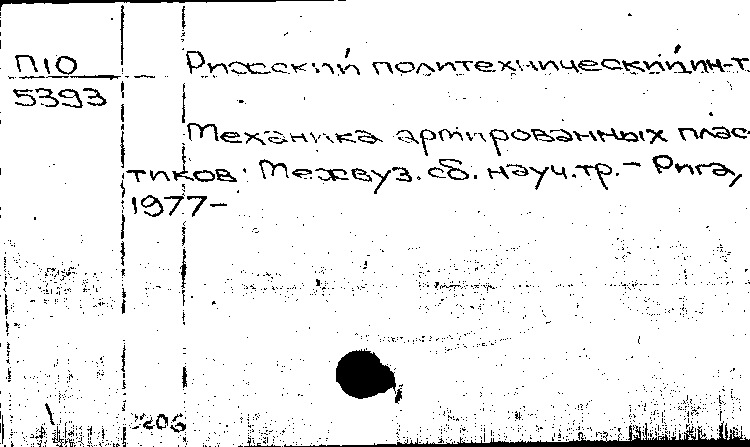 П10
5393
Рижский политехнический ин-т
Механика армированных плас-
тиков: Межвуз. сб. науч. тр. - Рига,
1977-
2206